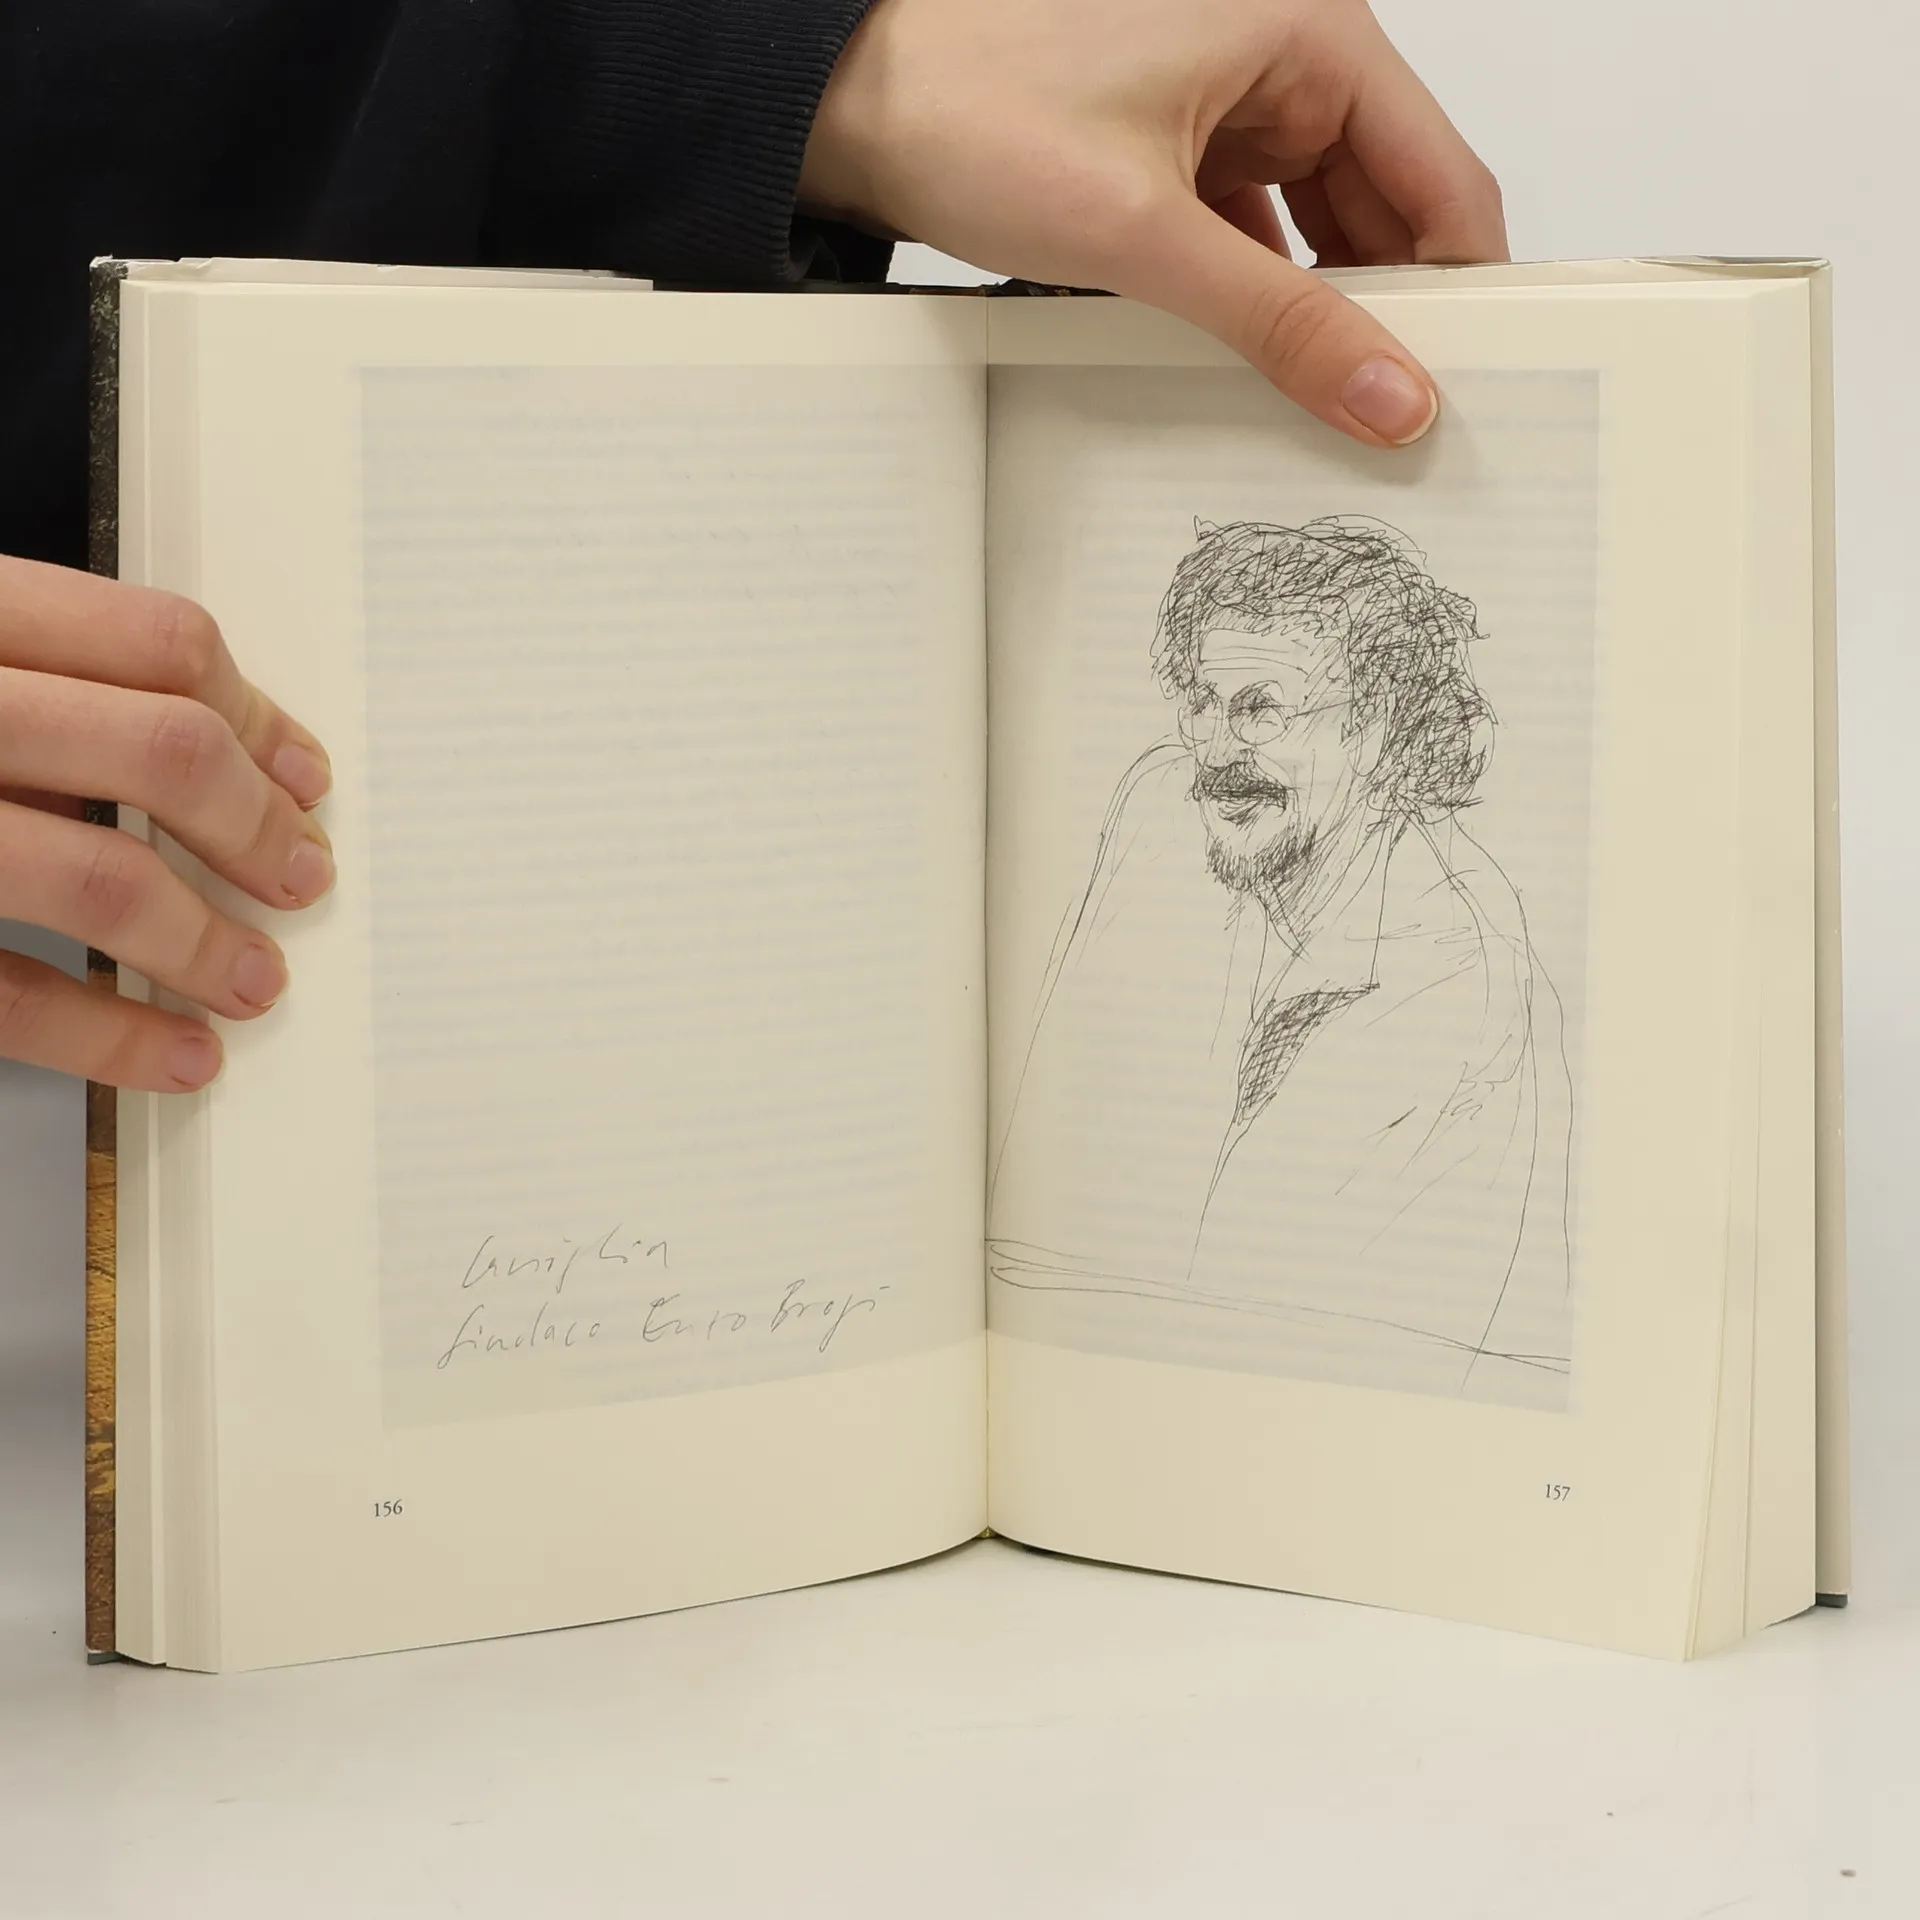 Caviglia
Sindaco Enzo Brogi
156
157